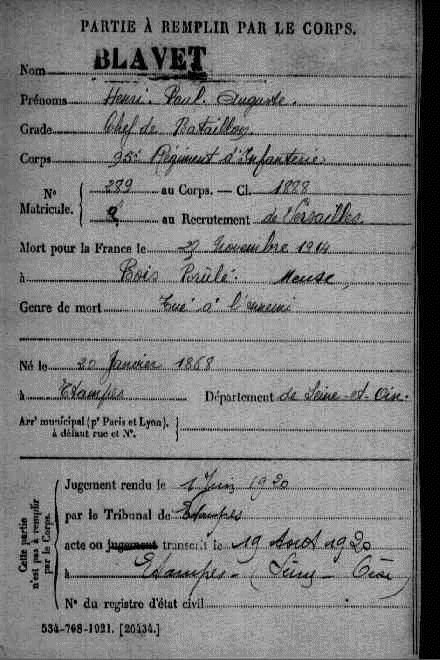 PARTIE À REMPLIR PAR LE CORPS.
Nom BLAVET
Prénoms Henri Paul Auguste.
Grade Chef de Bataillon
Corps 95e Régiment d'Infanterie
N° Matricule. { 289 au Corps. — Cl. 1888
au Recrutement de Versailles
Mort pour la France le 27 Novembre 1914
à Bois Brûlé. Meuse,
Genre de mort Tué à l'ennemi
Né le 20 Janvier 1868
à Etampes Département de Seine-et-Oise
Arrt municipal (pr Paris et Lyon), à défaut rue et N°. }
Cette partie n'est pas à remplir par le Corps.
Jugement rendu le 1 Juin 1920
par le Tribunal de Etampes
acte ou jugement transcrit le 19 Août 1920
à Etampes - (Seine - Oise)
N° du registre d'état civil
534-708-1921. [26434.]